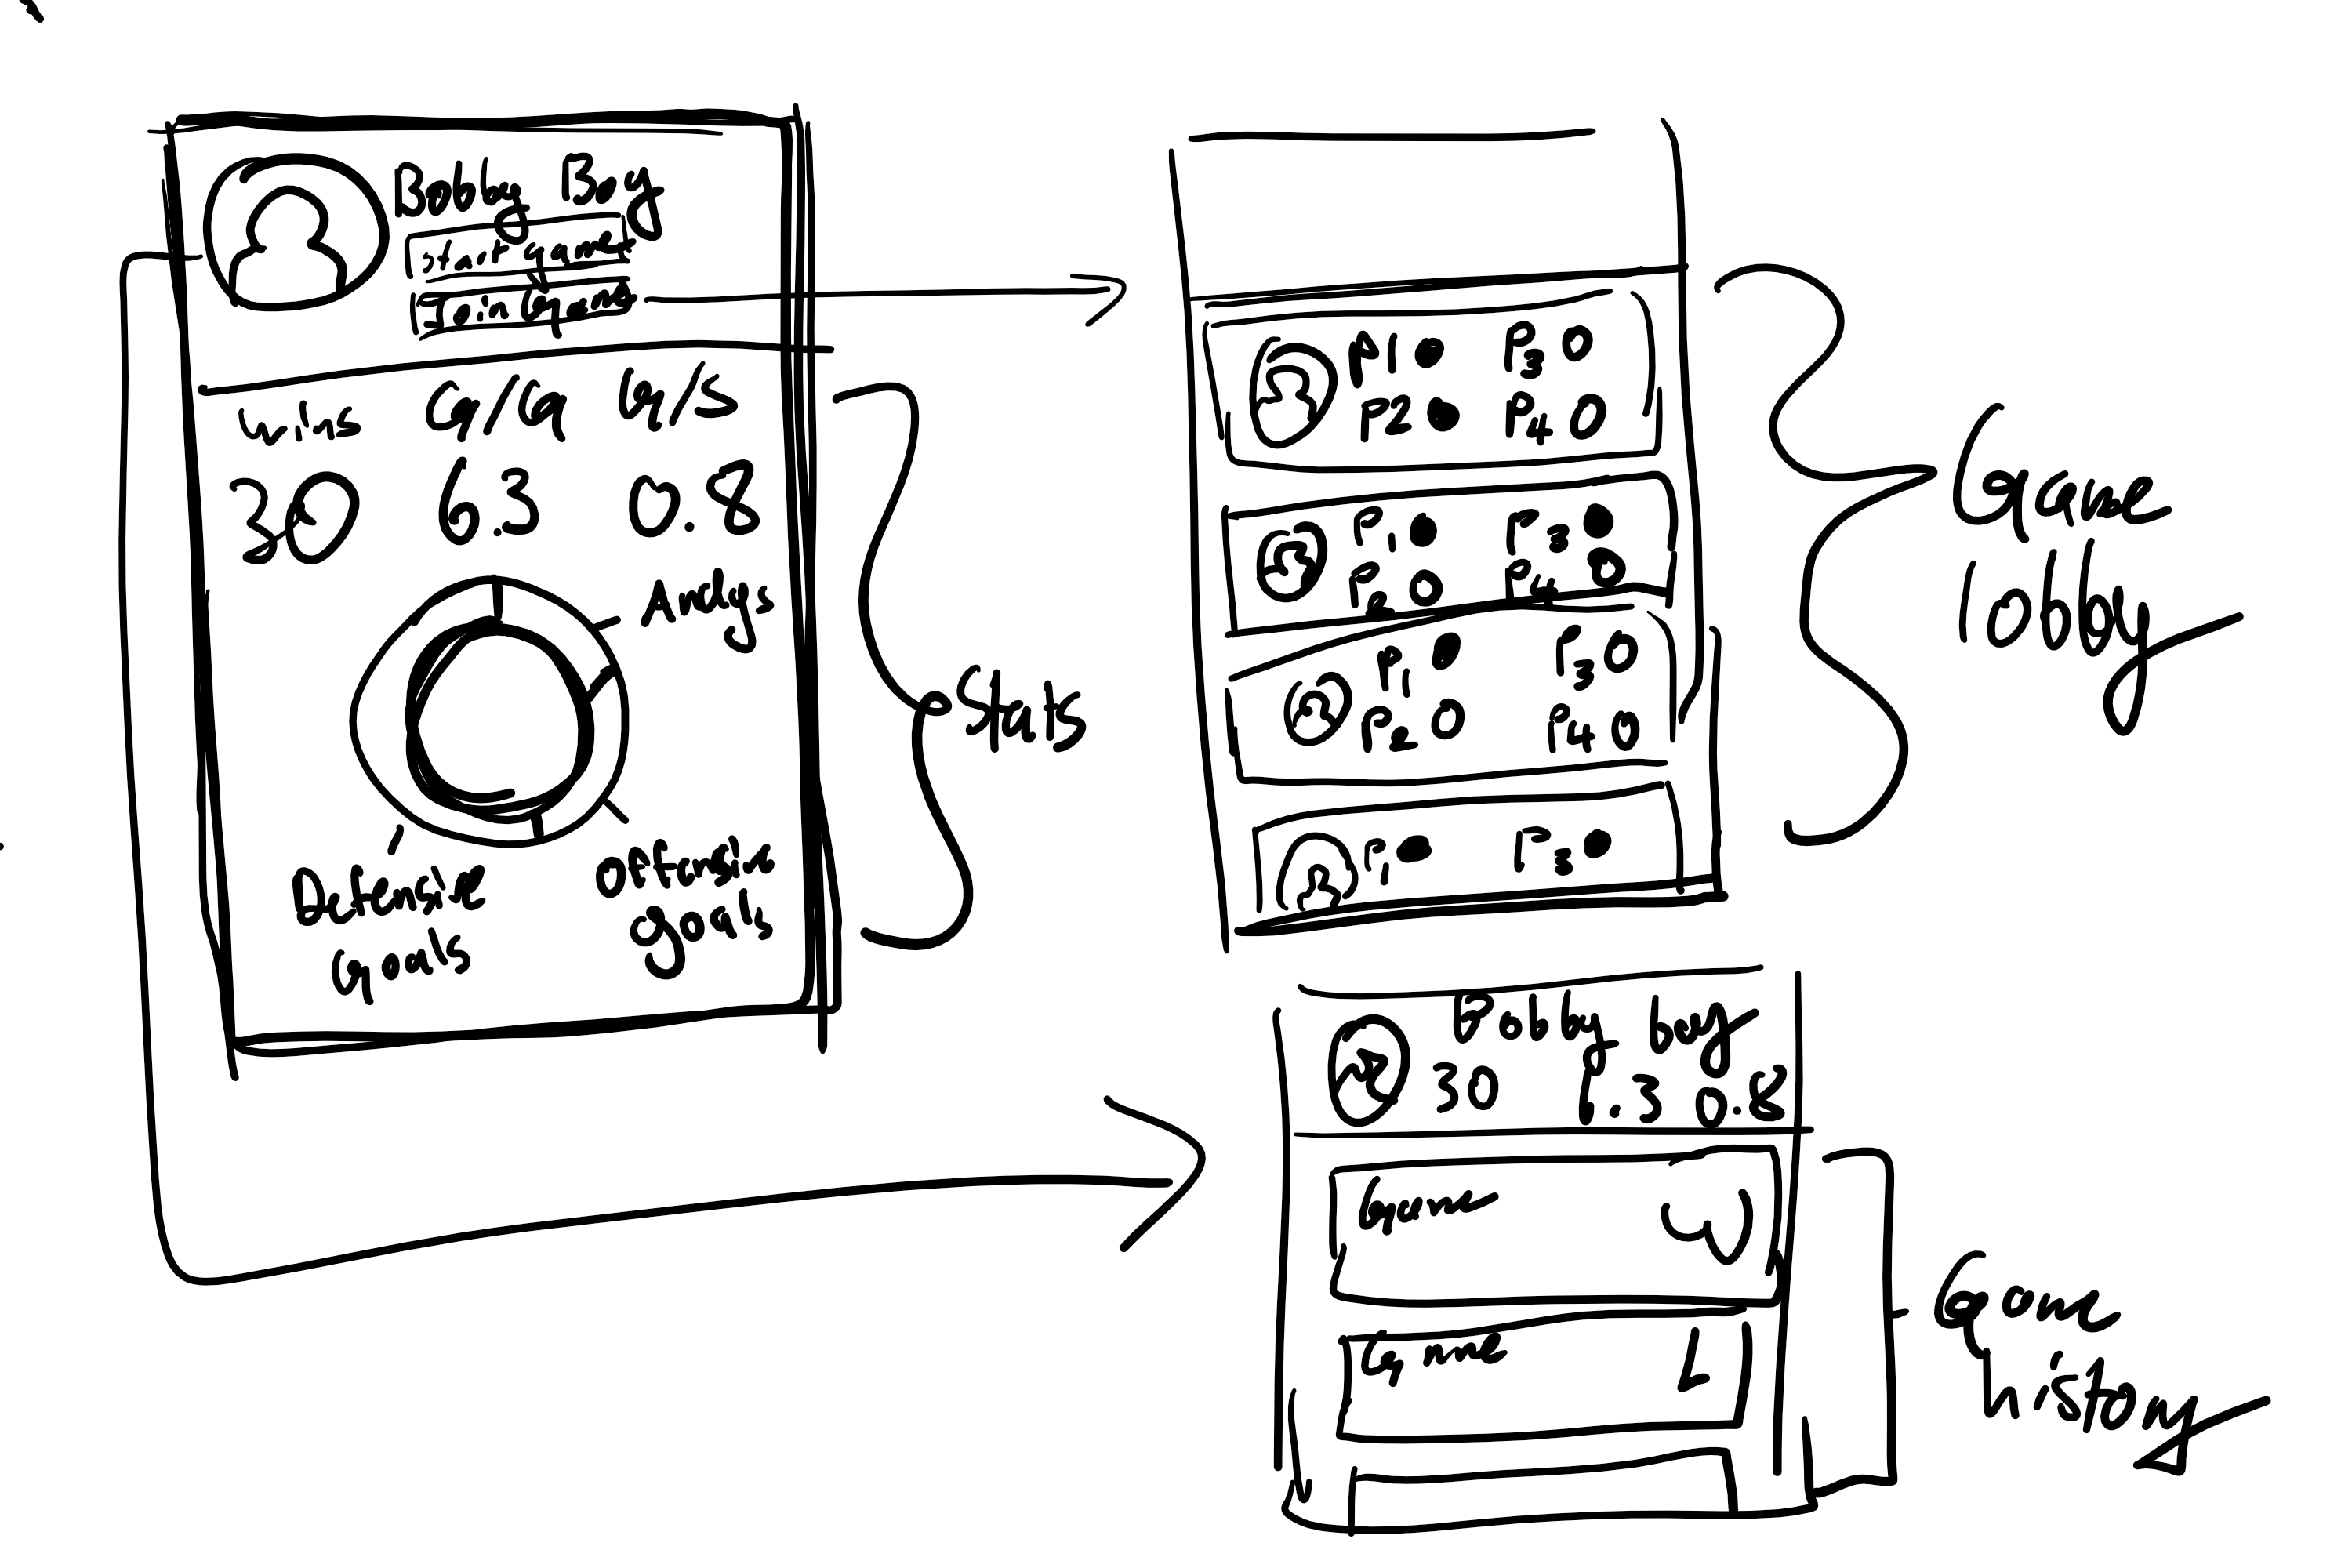 Bobby Boy
start game
join game
wins g/g g/s
30 6.3 0.8
Andys
Defensive
goals
offensive
goals
Stats
P1 P3
P2 P4
P1 P3
P2 P4
P1 P3
P2 P4
P1 P3
Game
lobby
Bobby boy
30 1.3 0.8
Game W
Game L
Game
history